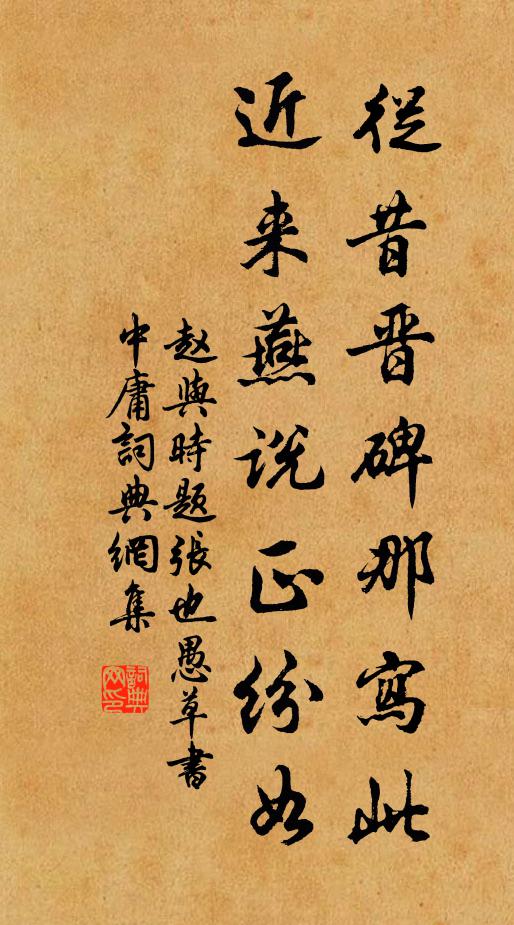 從昔晋碑那寫此
近来燕说正紛如
赵與時题張也愚草書
中庸詞典網集
詞典网印